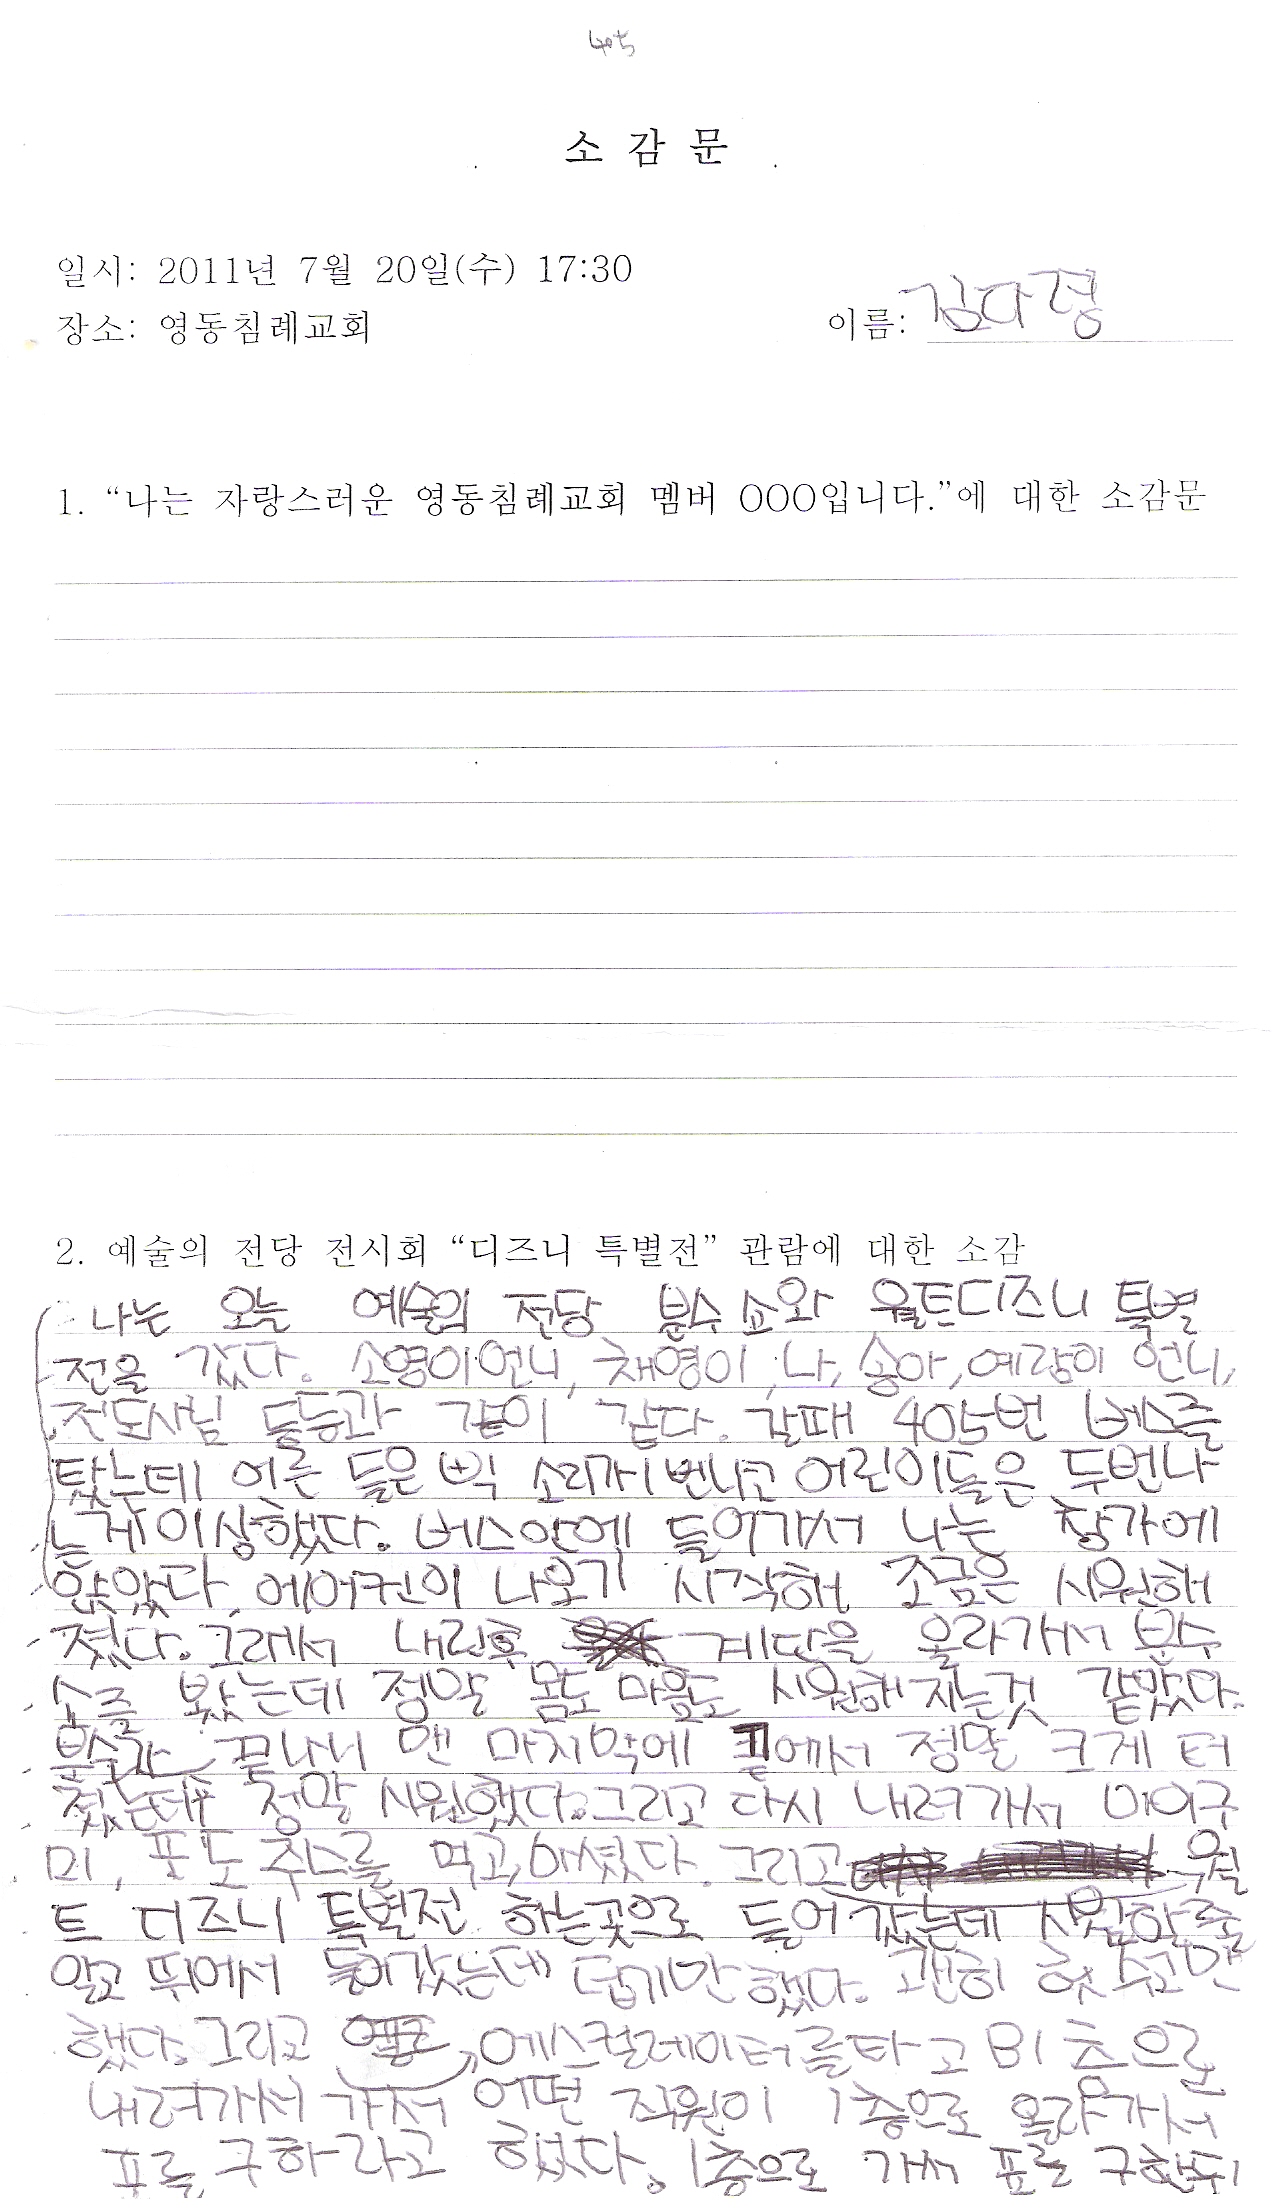 405
소 감 문
일시: 2011년 7월 20일(수) 17:30
장소: 영동침례교회
이름: 김다령
1. “나는 자랑스러운 영동침례교회 멤버 OOO입니다.”에 대한 소감문
2. 예술의 전당 전시회 “디즈니 특별전” 관람에 대한 소감
나는 오늘 예술의 전당 분수 쇼와 월트디즈니 특별
전을 갔다. 소영이언니, 채영이, 나, 송아, 예람이 언니,
전도사님 들등과 같이 갔다. 갈때 405번 버스를
탔는데 어른 들은 삑 소리가 1번나고 어린이들은 두번나
는게 이상했다. 버스안에 들어가서 나는 창가에
앉았다. 에어컨이 나오기 시작해 조금은 시원해
졌다. 그래서 내린후 계단을 올라가서 분수
쇼를 봤는데 정말 몸도 마음도 시원해 지는것 같았다.
분수가 끝나니 맨 마지막에 끝에서 정말 크게 터
졌는데 정말 시원했다. 그리고 다시 내려가서 마이구
미, 포도 주스를 먹고, 마셨다. 그리고 월
트 디즈니 특별전 하는곳으로 들어 갔는데 시원할줄
알고 뛰어서 들어갔는데 덥기만 했다. 괜히 헛 수고만
했다. 그리고 에스컬레이터를타고 B1 층으로
내려가서 가서 어떤 직원이 1층으로 올라가서
표를 구하라고 했다. 1층으로 가서 표를 구한뒤